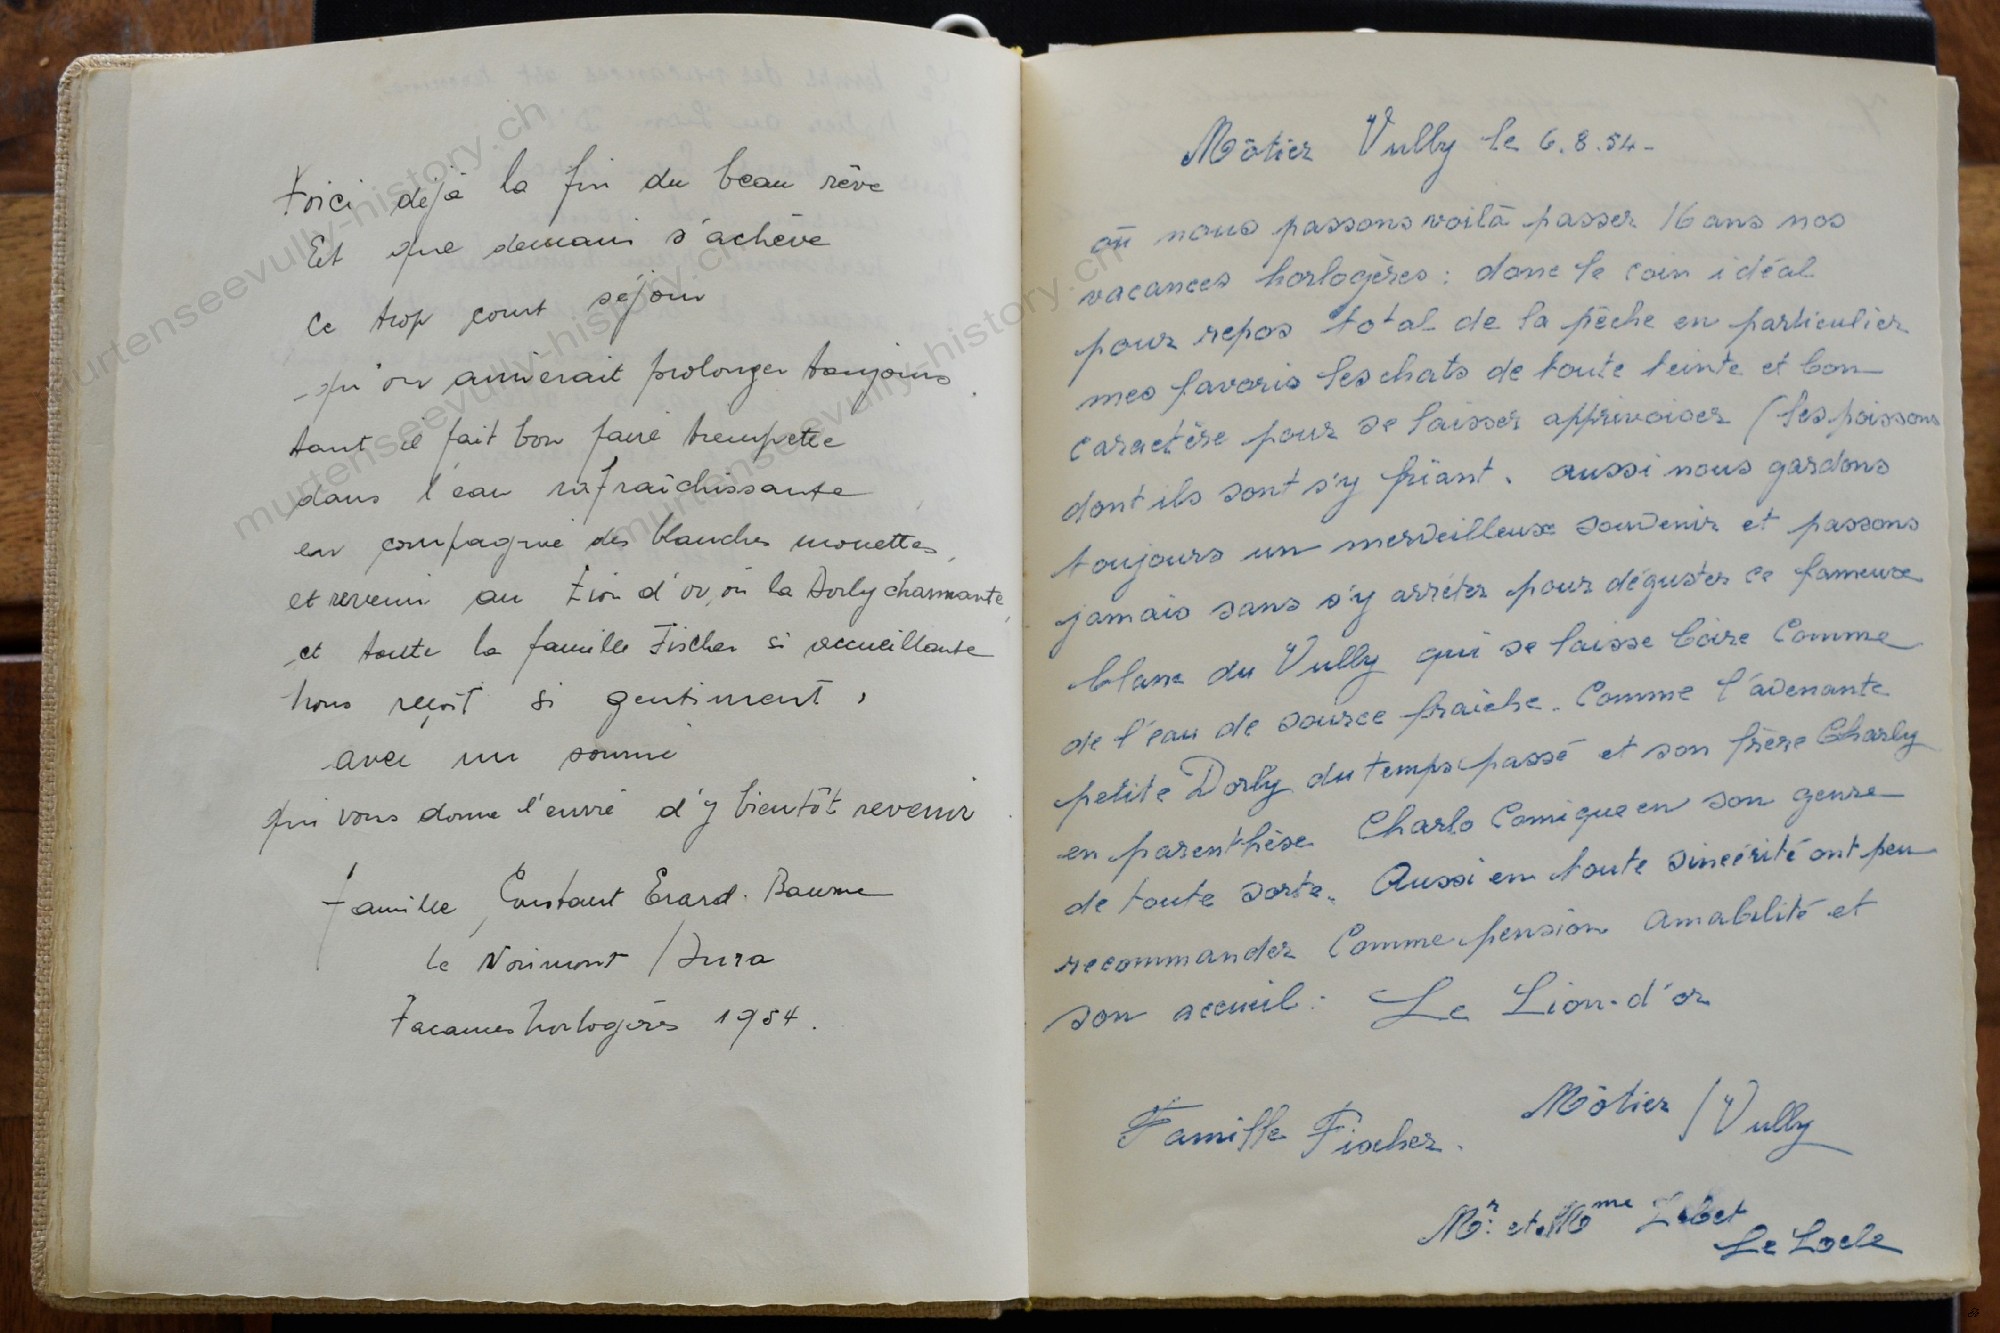 Voici déjà la fin du beau rêve
Et que demain s'achève
Ce trop court séjour
qu'on aimerait prolonger toujours.
tant il fait bon faire trempette
dans l'eau rafraîchissante
en compagnie des blanches mouettes,
et revenir au Lion d'or, où la Dorly charmante,
et toute la famille Fischer si accueillante
nous reçoit si gentiment,
avec un sourire
qui vous donne l'envie d'y bientôt revenir.
famille Constant Erard-Baume
Le Noirmont / Jura
Vacances horlogères 1954.
Môtier Vully le 6.8.54-
où nous passons voilà passer 16 ans nos
vacances horlogères: donc le coin idéal
pour repos total de la pêche en particulier
mes favoris les chats de toute teinte et bon
caractère pour se laisser apprivoiser (les poissons
dont ils sont s'y friant. aussi nous gardons
toujours un merveilleux souvenir et passons
jamais sans s'y arrêter pour déguster ce fameux
blanc du Vully qui se laisse boire comme
de l'eau de source fraîche. Comme l'avenante
petite Dorly du temps passé et son frère Charly
en parenthèse Charlo Comique en son genre
de toute sorte. Aussi en toute sincérité ont peu
recommander comme pension amabilité et
son accueil: Le Lion-d'or
Môtier / Vully
Famille Fischer.
Mr. et Mme
Le Locle
murtenseevully-history.ch
murtenseevully-history.ch
murtenseevully-history.ch
murtenseevully-history.ch